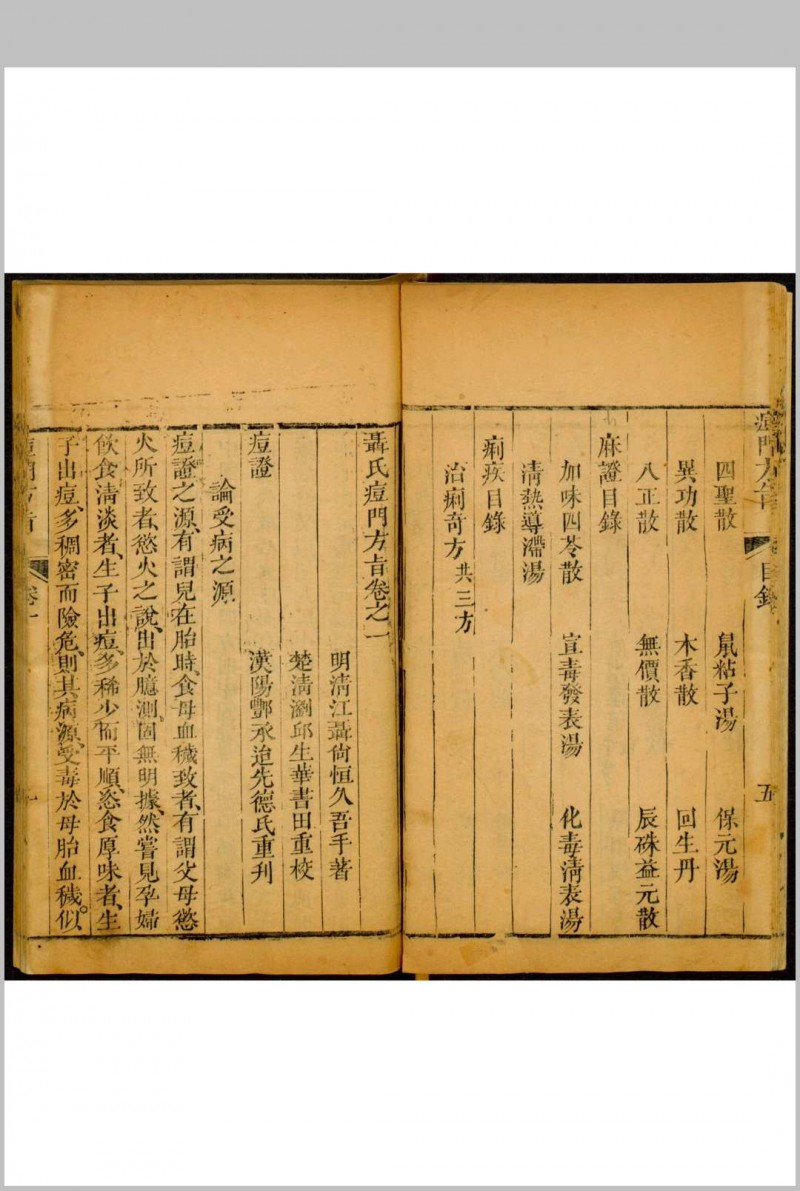 痘門方旨 目錄 五
四聖散 鼠粘子湯 保元湯
異功散 木香散 回生丹
八正散 無價散 辰硃益元散
麻證目錄
加味四苓散 宣毒發表湯 化毒清表湯
清熱導滯湯
痢疾目錄
治痢奇方共三方
聶氏痘門方旨卷之一
明清江聶尙恒久吾手著
楚清瀏邱生華書田重校
漢陽酆承迨先德氏重刋
痘證
論受病之源
痘證之源、有謂兒在胎時、食母血穢致者、有謂父母慾
火所致者、慾火之說、出於臆測、固無明據、然嘗見孕婦
飲食清淡者、生子出痘、多稀少而平順、恣食厚味者、生
子出痘、多稠密而險危、則其病源、受毒於母胎血穢、似
痘門方旨 卷一 一